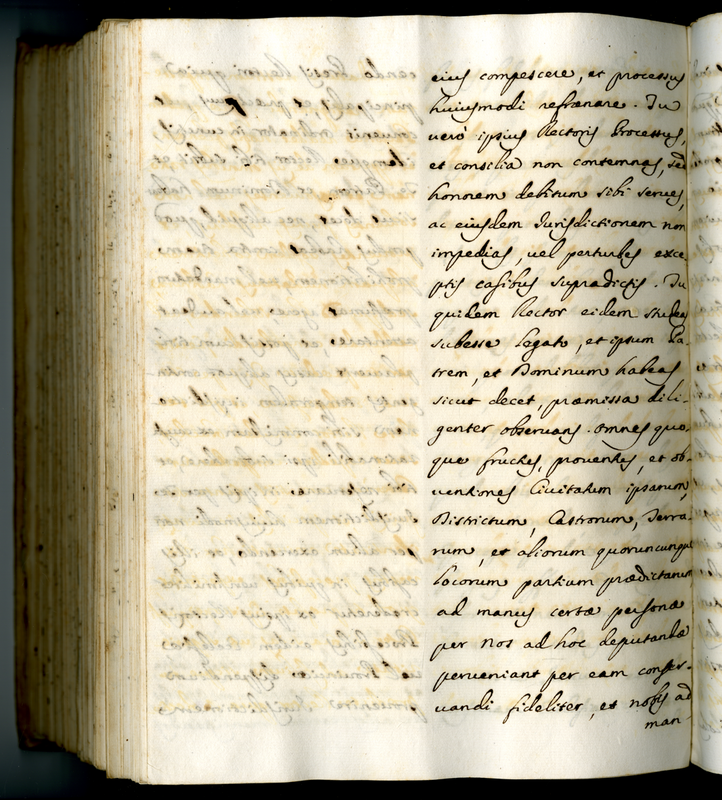 eius compescere, et processus
huiusmodi refrænare. Tu
uerò ipsius Rectoris Processus,
et consilia non contemnas, sed
honorem debitum sibi serues,
ac eiusdem Jurisdictionem non
impedias, uel perturbes exce
ptis casibus supradictis. Tu
quidem Rector eidem studeas
subesse Legato, et ipsum Pa-
trem, et Dominum habeas
sicut decet, præmissa dili-
genter obseruans. Omnes quo-
que fructus, prouentus, et ob-
uentiones Ciuitatum ipsarum,
Districtum, Castrorum, Terra-
rum, et aliorum quoruncunque
locorum partium prædictarum
ad manus certæ personæ
per Nos ad hoc deputandæ
perueniant per eam conser-
uandi fideliter, et nobis ad
man-